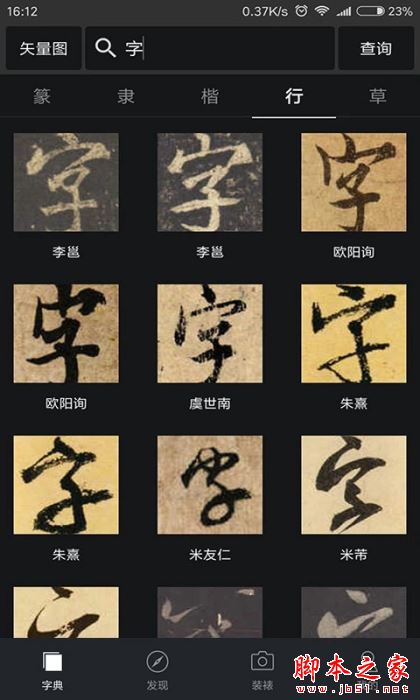 16:12 0.37K/s 23%
矢量图 字 查询
篆 隶 楷 行 草
字 字 字
李邕 李邕 欧阳询
字 字 字
欧阳询 虞世南 朱熹
字 字 字
朱熹 米友仁 米芾
字典 发现 装裱
脚本之家
www.jb51.net